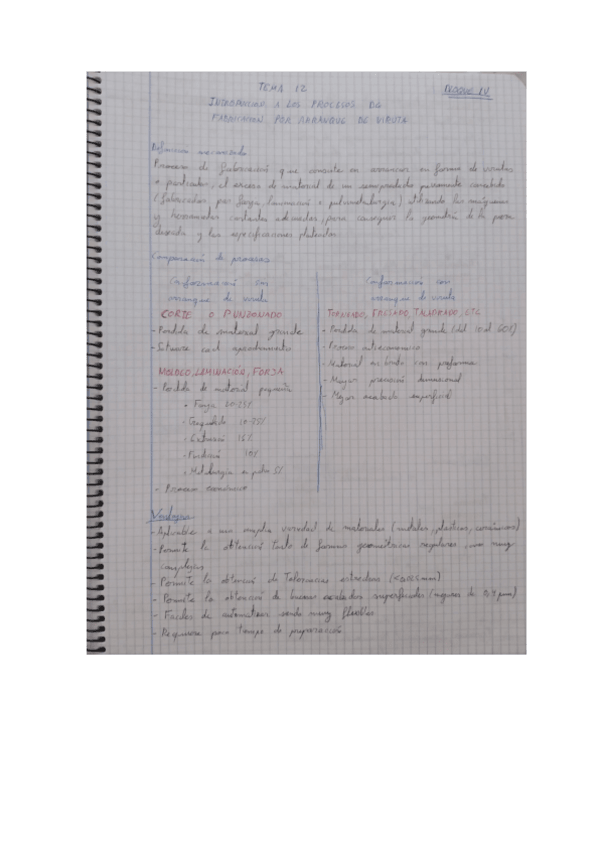 TEMA 12
BLOQUE IV
INTRODUCCION A LOS PROCESOS DE
FABRICACION POR ARRANQUE DE VIRUTA
Definicion mecanizado
Proceso de fabricación que consiste en arrancar en forma de virutas
o partículas, el exceso de material de un semiproducto previamente
(fabricados por forja, laminación o pulvimetalurgia) utilizando las máquinas
y herramientas cortantes adecuadas, para conseguir la geometría de la pieza
deseada y las especificaciones
Comparación de procesos
Conformación sin
arranque de viruta
CORTE O PUNZONADO
- Perdida de material grande
- Sistema
MOLDEO, LAMINACIÓN, FORJA
- Perdida de material pequeña
• Forja 20-25%
10-25%
- Extrusión 15%
- Fundición 10%
• Metalurgia en polvo 5%
- Proceso económico
Conformación con
arranque de viruta
TORNEADO, FRESADO, TALADRADO, ETC
- Perdida de material grande (del 10 al 60%)
- Proceso antieconomico
- Material en bruto con preforma
- Mayor precisión dimensional
- Mejor acabado superficial
Ventajas
- Aplicable a una amplia variedad de materiales (metales, plasticos, cerámicos)
- Permite la obtención tanto de formas geométricas regulares, como muy
complejas
- Permite la obtención de Tolerancias estrechas (<0,025mm)
- Permite la obtención de buenos acabados superficiales (mejores de 0,4 µm)
- Faciles de automatizar siendo muy flexibles
- Requiere poco tiempo de preparación